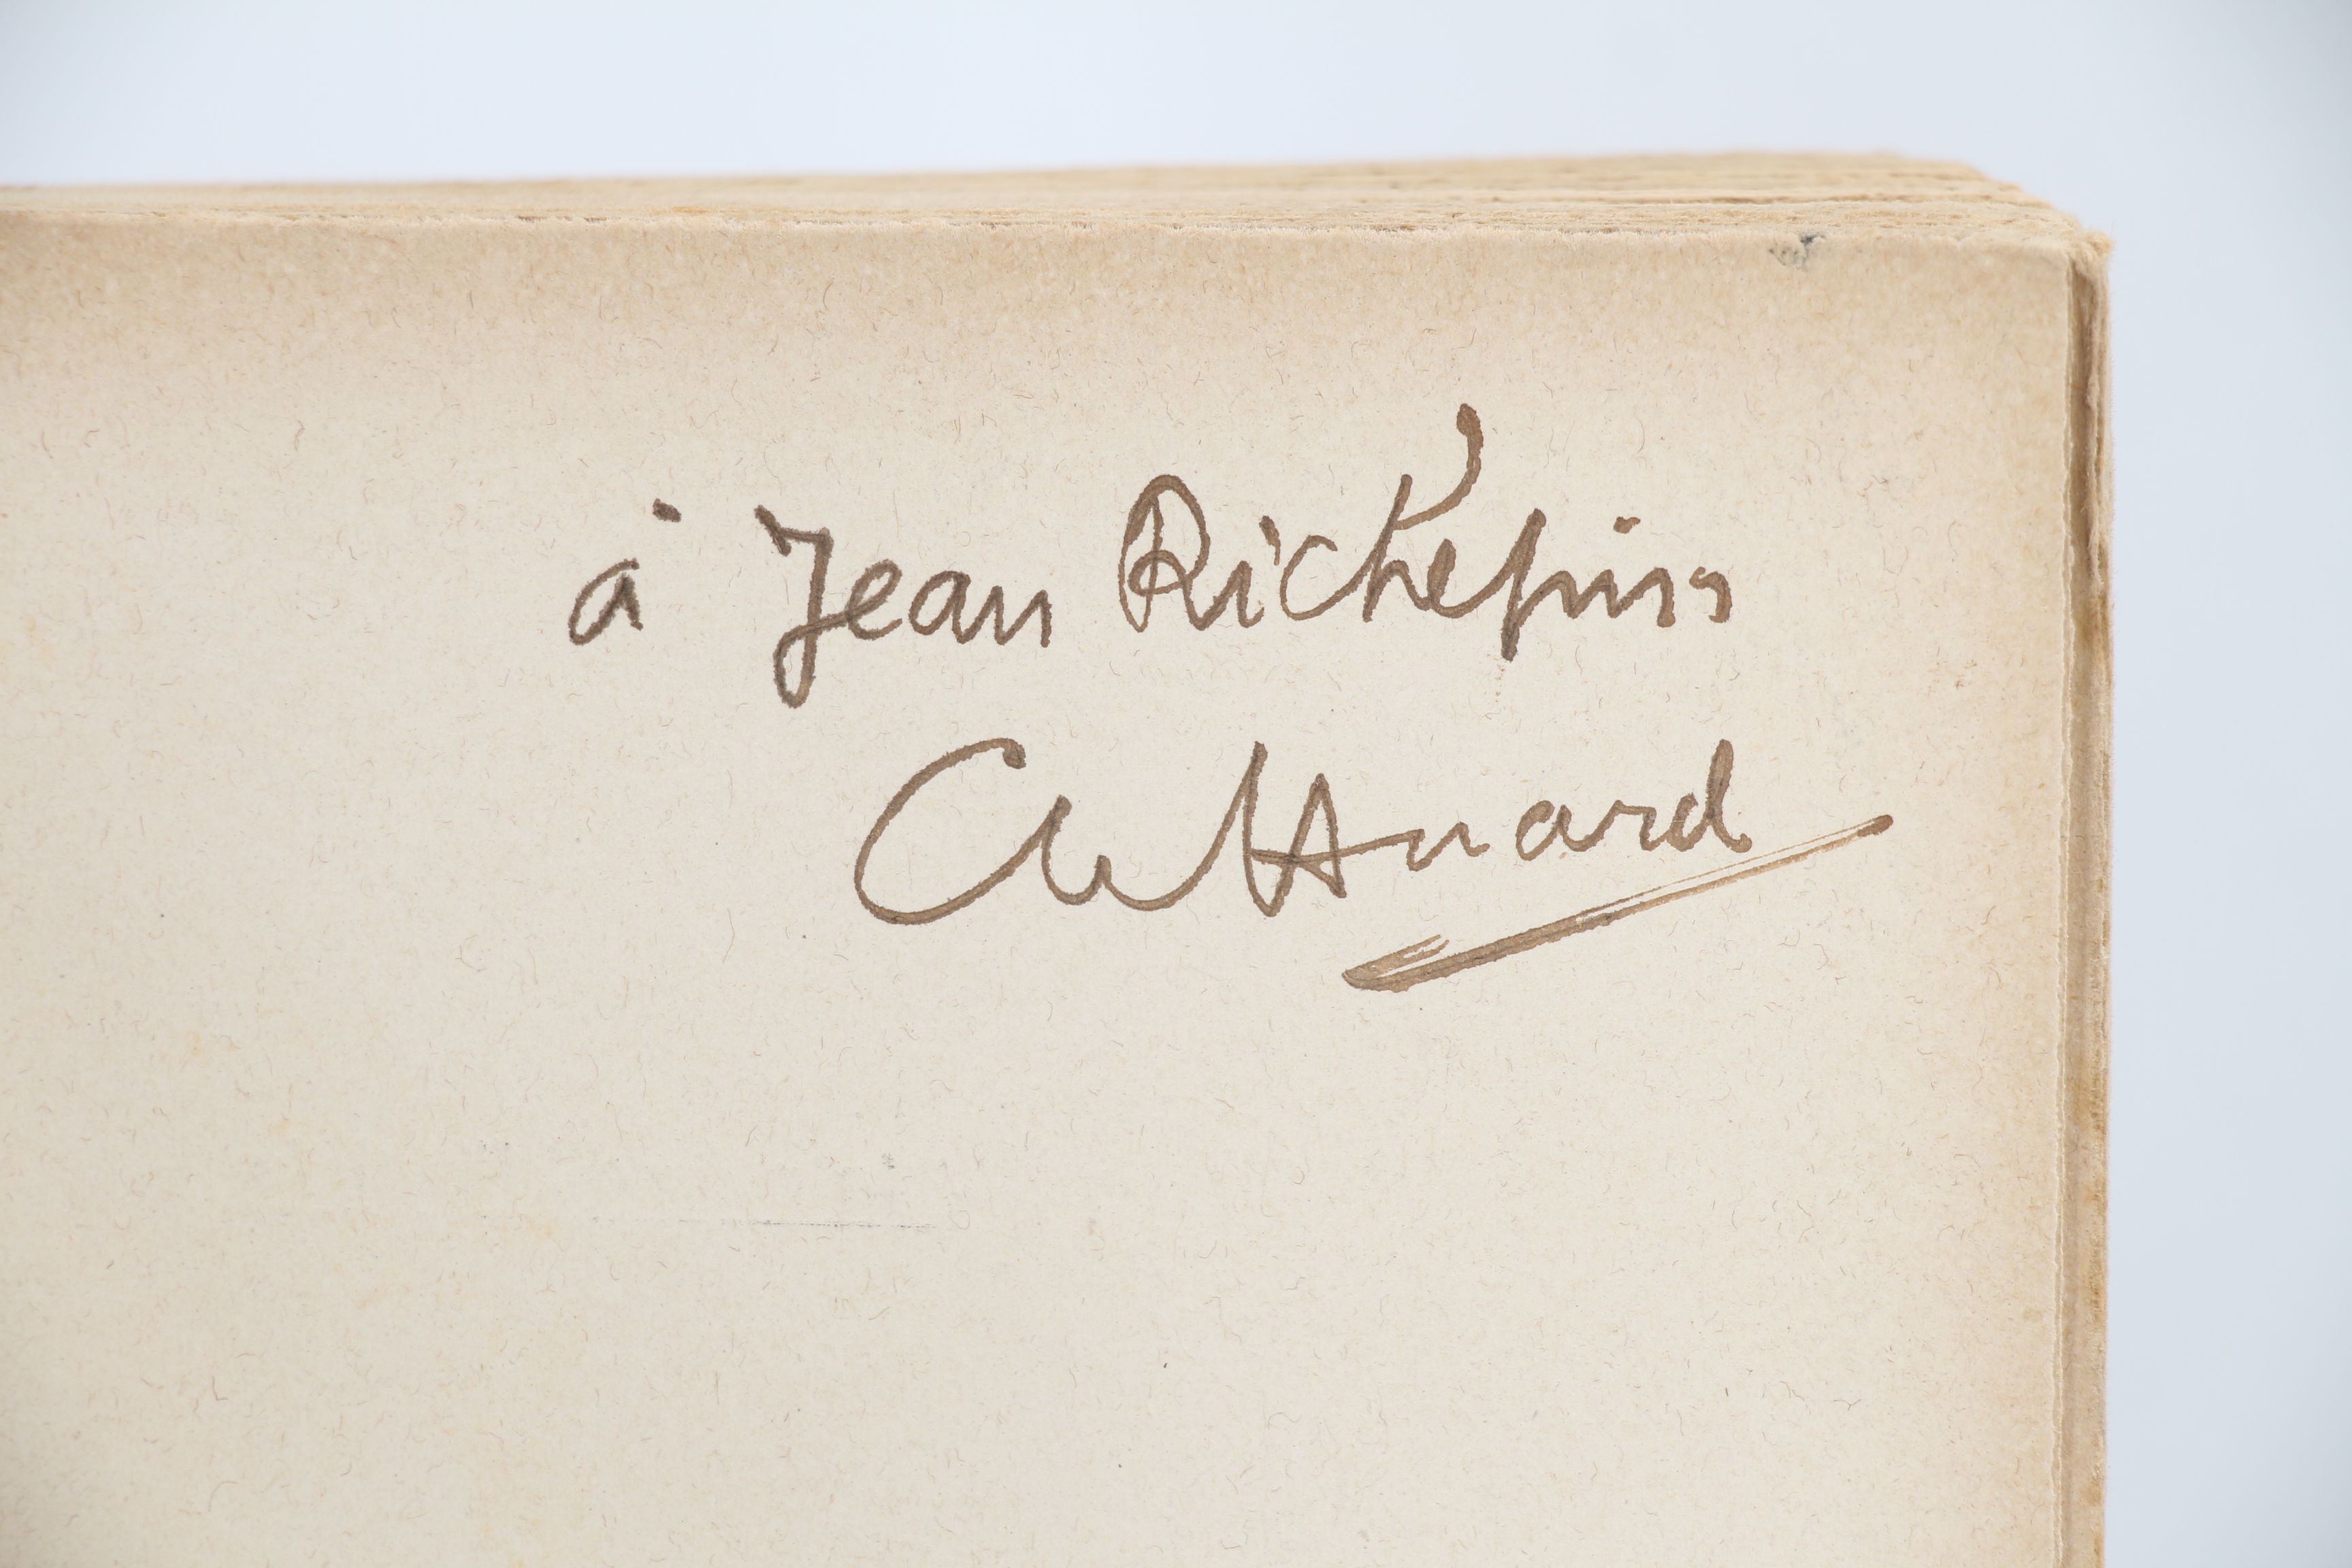 à Jean Richepin
Ch Huard